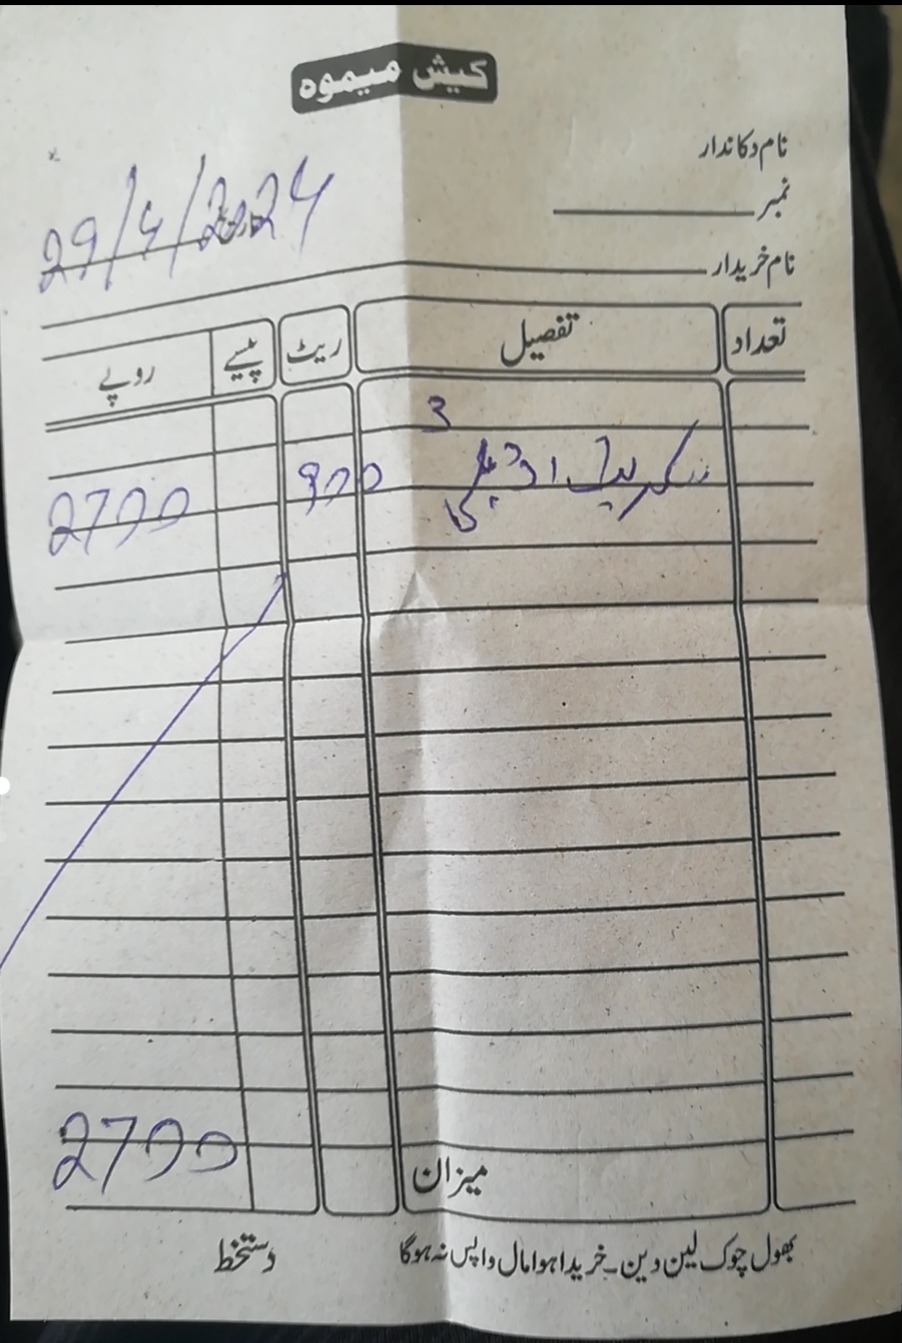 کیش میمو
نام دکاندار
نمبر
تاریخ 29/4/2024
نام خریدار
تعداد تفصیل ریٹ پیسے روپے
3
900 2700
میزان 2700
بھول چوک لین دین۔ خریدا ہوا مال واپس نہ ہوگا دستخط